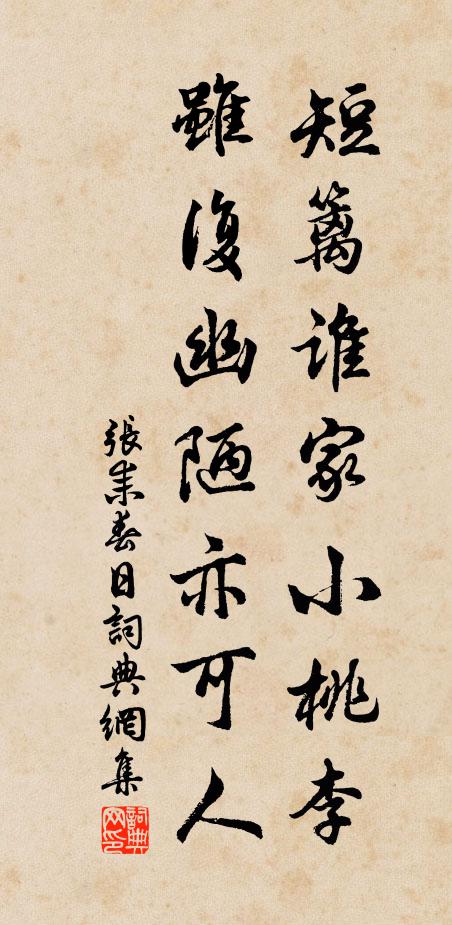 短篱谁家小桃李
雖復幽陋亦可人
張耒春日詞典網集
詞典网印